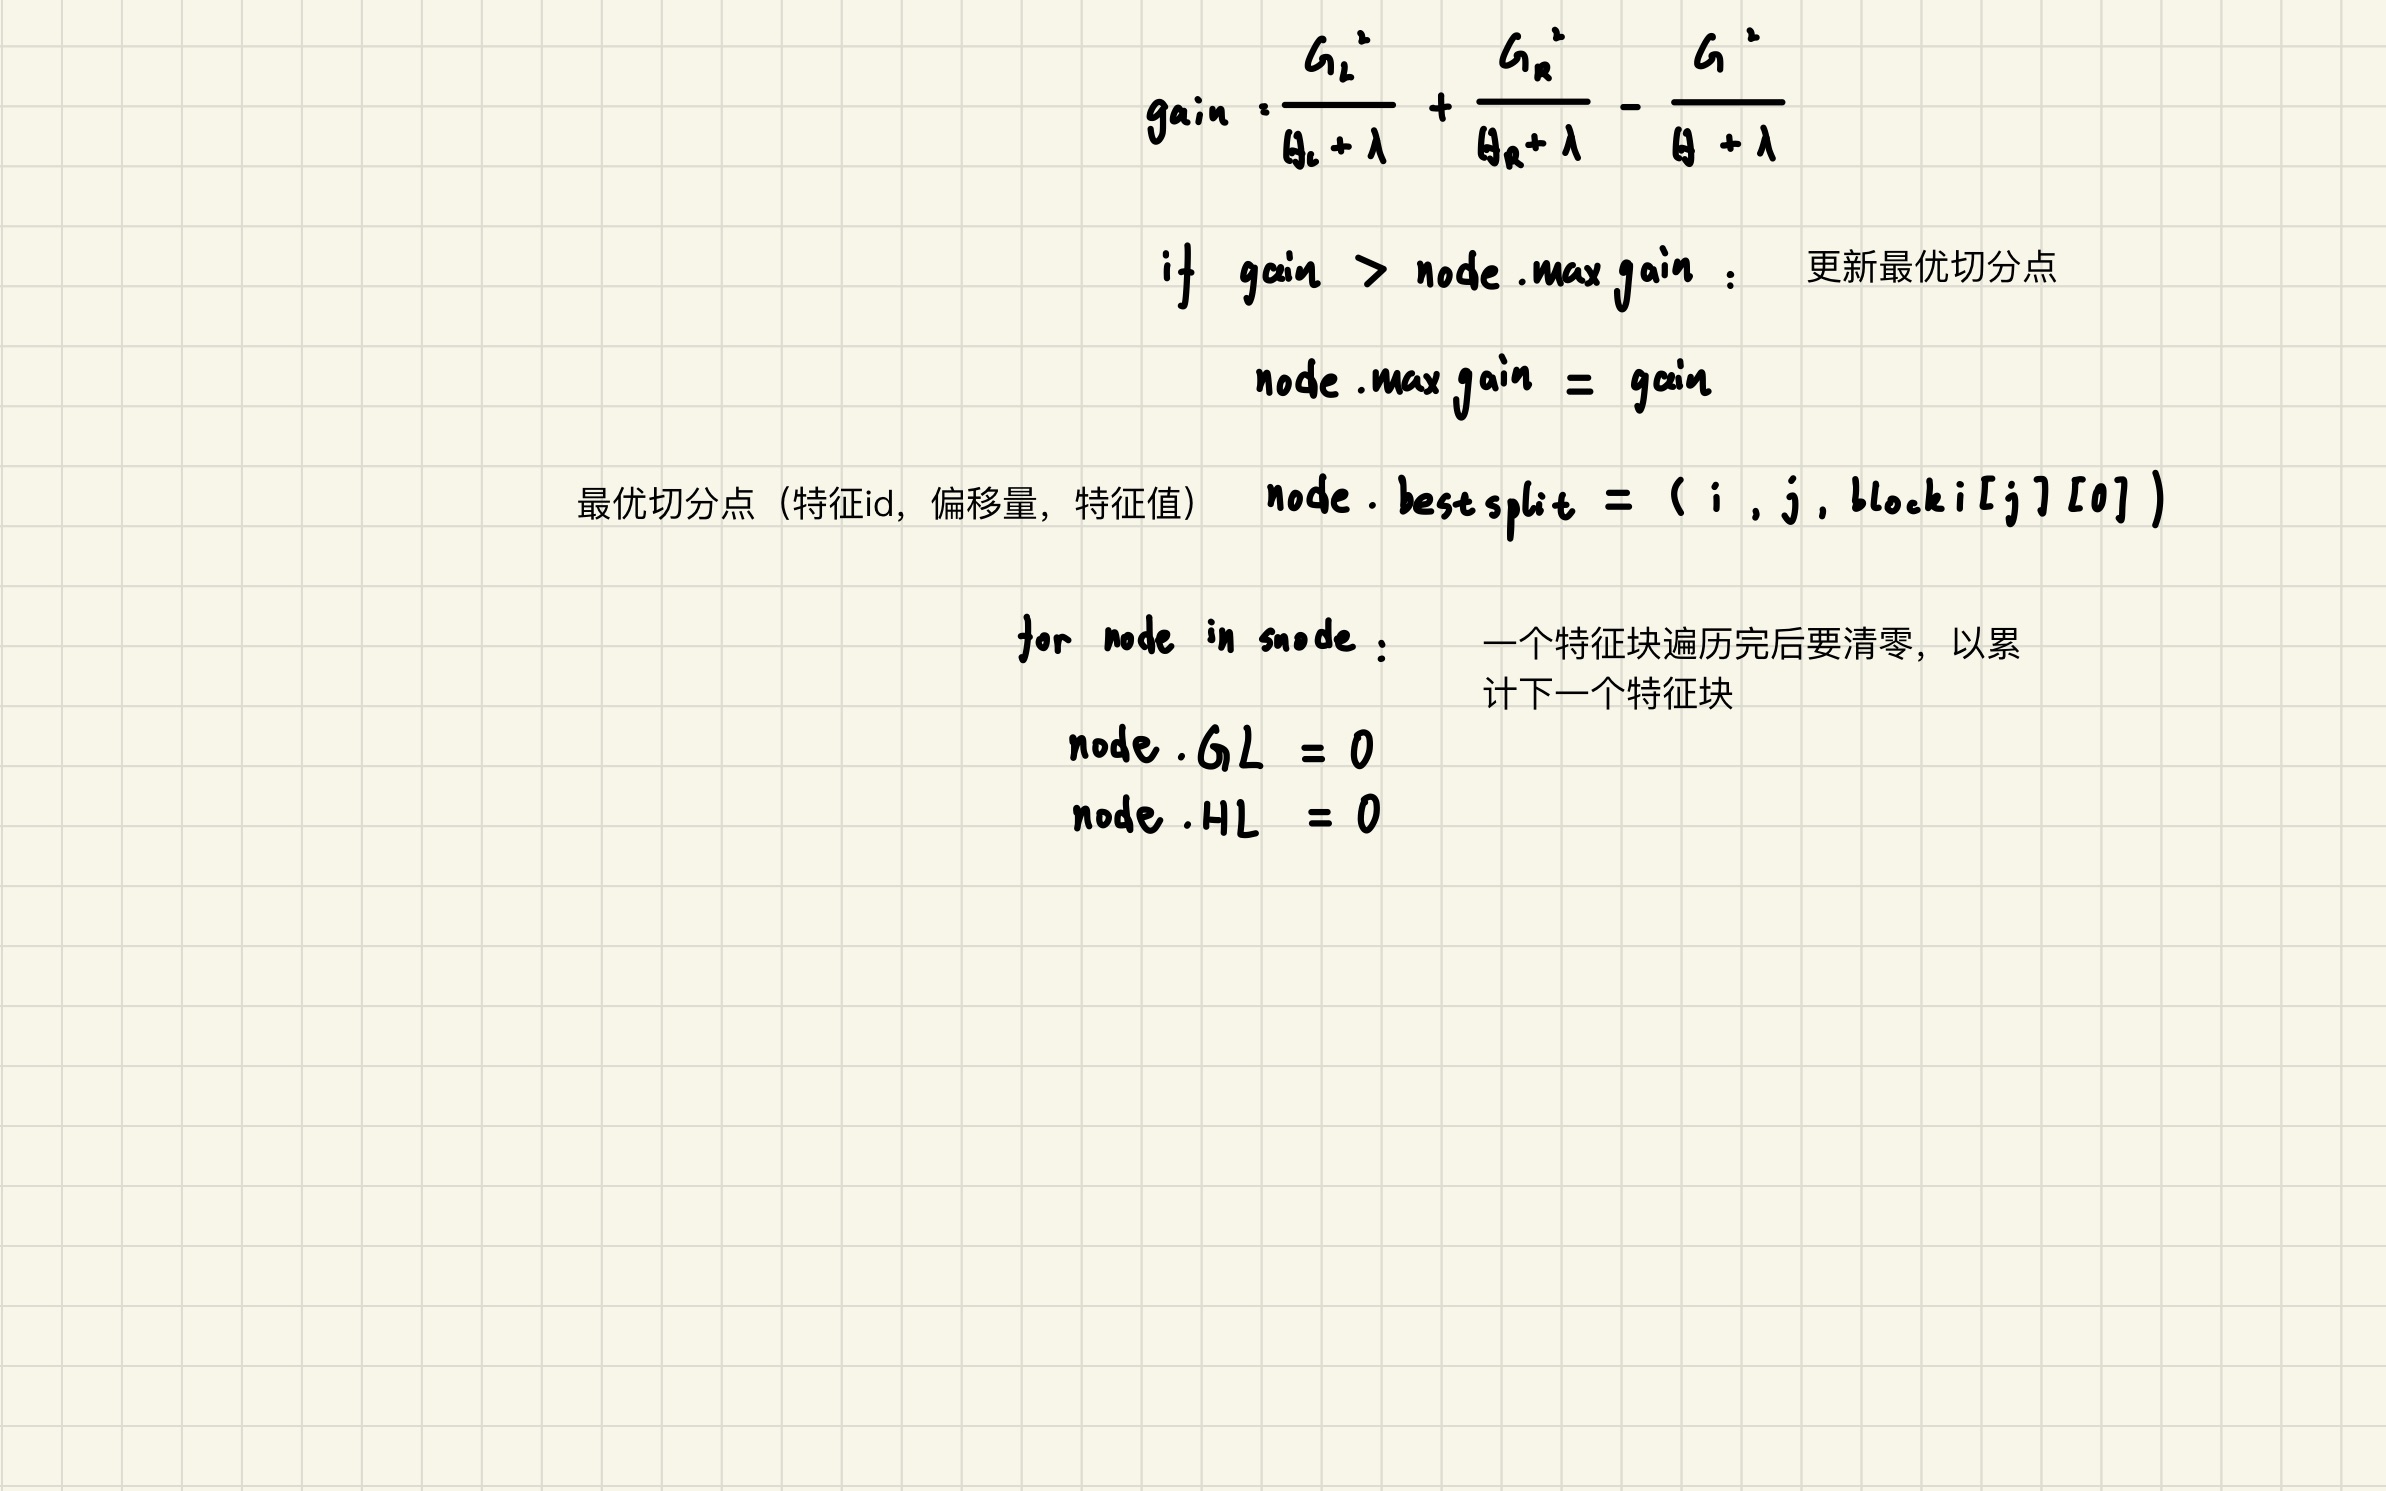 gain = G_L² / (H_L + λ) + G_R² / (H_R + λ) - G² / (H + λ)
if gain > node.maxgain : 更新最优切分点
node.maxgain = gain
最优切分点（特征id，偏移量，特征值） node.bestsplit = (i, j, blocki[j][0])
for node in snode : 一个特征块遍历完后要清零，以累
计下一个特征块
node.GL = 0
node.HL = 0